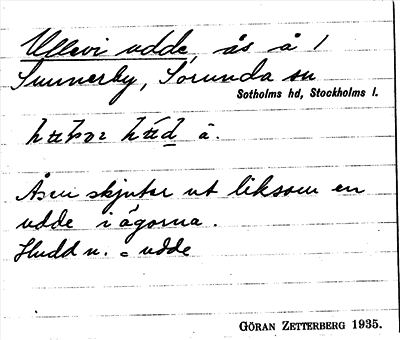 Ullevi udde, ås å 1
Sunnerby, Sorunda sn
Sotholms hd, Stockholms l.
å.
Åsen skjuter ut liksom en
udde i ägorna.
Hudd n. = udde
GÖRAN ZETTERBERG 1935.